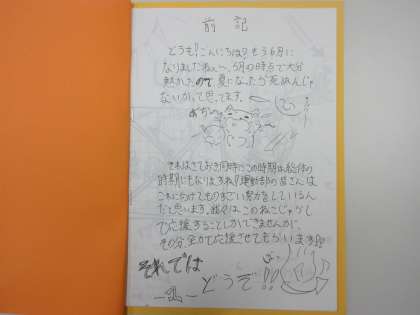 前記
どうも!こんにちは!!もう6月に
なりましたねぇ〜、5月の時点で大分
熱かったので、夏になったら死ぬんじゃ
ないかって思ってます。
あぢぃ〜
それはさておき同時にこの時期は総体の
時期にもなりますね!運動部の皆さんは
これに向けてものすごい努力をしているん
だと思います。我々はこのねこじゃらし
で応援することしかできませんが、
その分、全力で応援させてもらいます!!
それでは
どうぞ!!